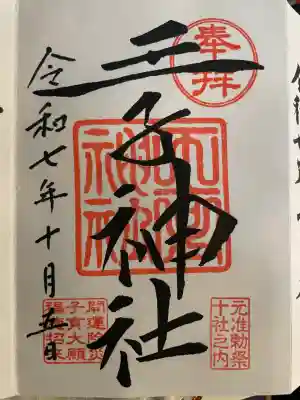 奉拝
王子神社
元准勅祭
十社之内
開運除災
子育大願
福徳招来
令和七年十月五日